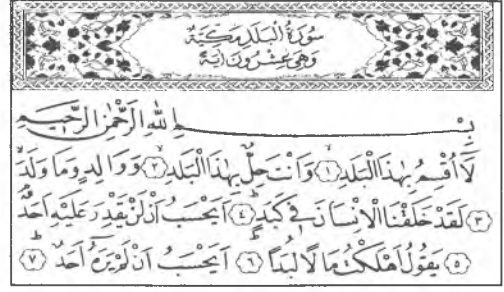 سُورَةُ الْبَلَدِ مَكِّيَّةٌ
وَهِيَ عِشْرُونَ اٰيَةً
بِسْمِ اللّٰهِ الرَّحْمٰنِ الرَّحِيْمِ
لَآ اُقْسِمُ بِهٰذَا الْبَلَدِ ۙ﴿۱﴾ وَاَنْتَ حِلٌّۢ بِهٰذَا الْبَلَدِ ۙ﴿۲﴾ وَوَالِدٍ وَّمَا وَلَدَ ۙ
﴿۳﴾ لَقَدْ خَلَقْنَا الْاِنْسَانَ فِيْ كَبَدٍ ؕ﴿۴﴾ اَيَحْسَبُ اَنْ لَّنْ يَّقْدِرَ عَلَيْهِ اَحَدٌ ۘ
﴿۵﴾ يَقُوْلُ اَهْلَكْتُ مَالًا لُّبَدًا ؕ﴿۶﴾ اَيَحْسَبُ اَنْ لَّمْ يَرَهٗۤ اَحَدٌ ؕ﴿۷﴾